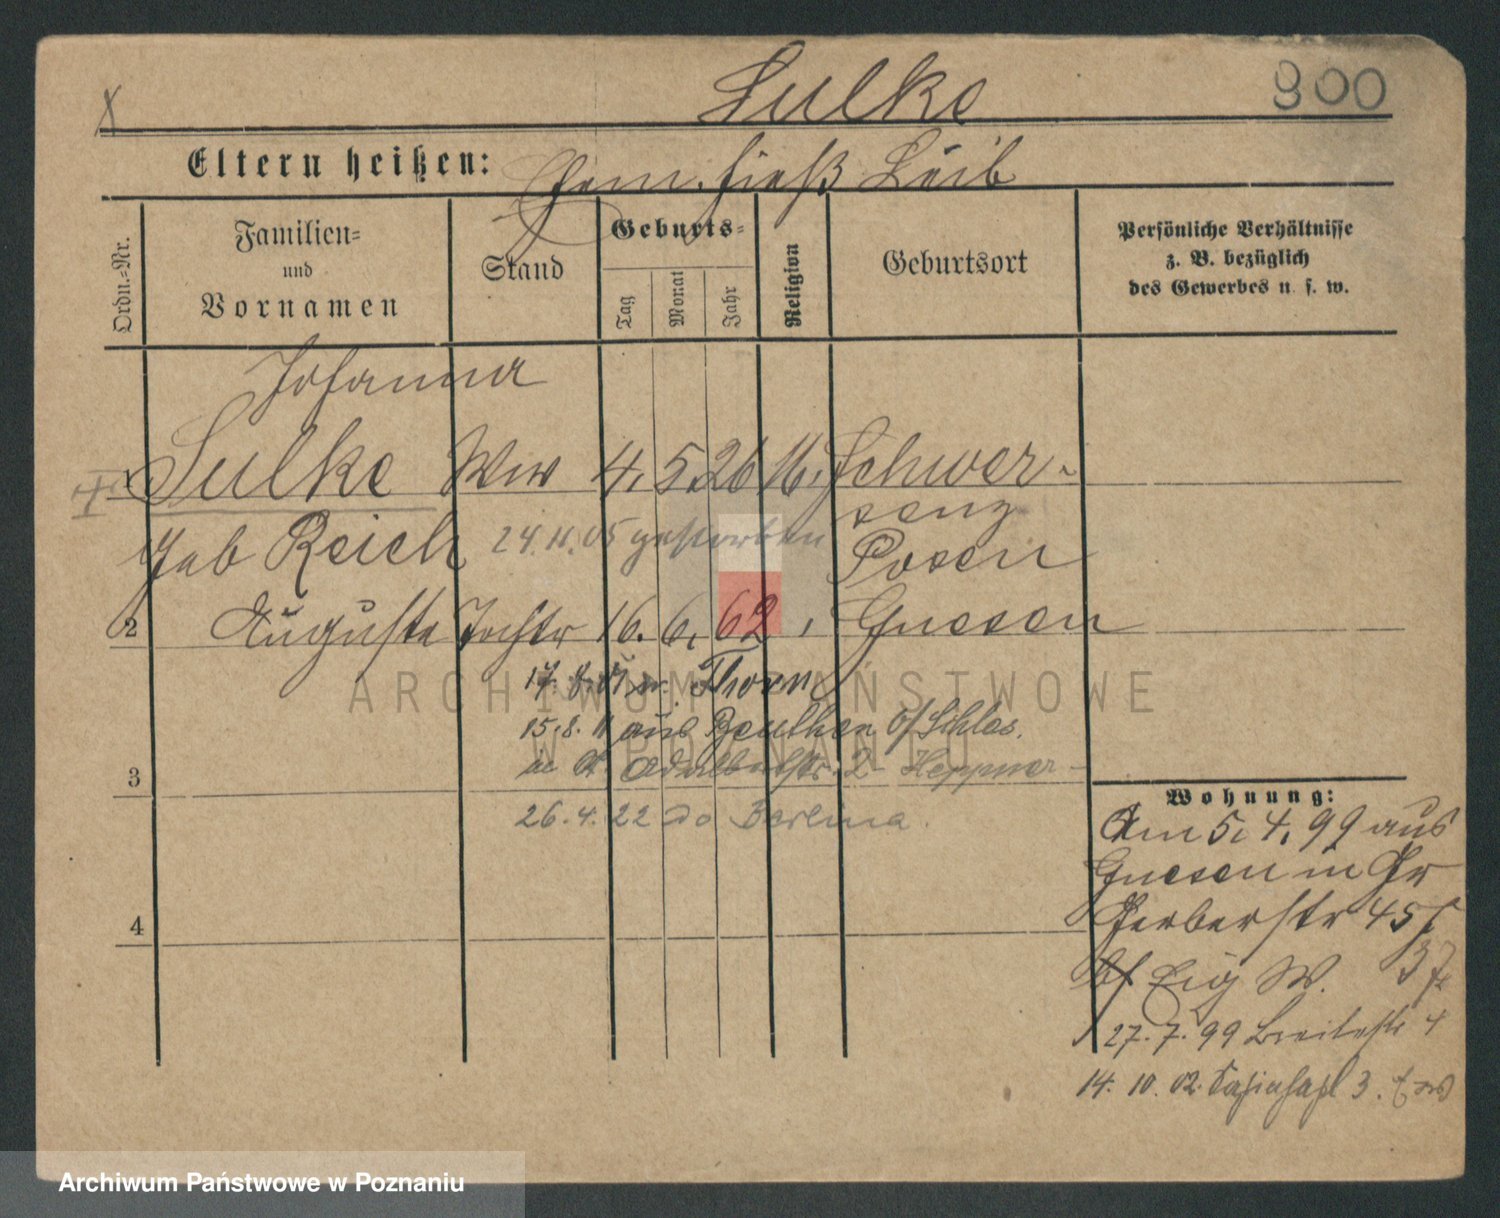 Sulke 900
Eltern heißen: Gem. hieß Leib
Ordn.-Nr.
Familien- und Vornamen
Stand
Geburts-
Tag Monat Jahr
Religion
Geburtsort
Persönliche Verhältnisse
z. B. bezüglich
des Gewerbes u. s. w.
Johanna
1 Sulke Ww 4. 5. 26 Schwer-
senz
Geb Reich 24. 11. 05 gestorben Posen
2 Auguste Tochtr 16. 6. 62 Gnesen
Thorn
15. 8. 11 aus Beuthen O/Schles.
3 Heppner
26. 4. 22 do Berlina.
4
Wohnung:
Am 5. 4. 99 aus
Gnesen in Gr
Gerberstr 45
Eig W.
27. 7. 99 Breitestr 4
14. 10. 02. 3.
ARCHIWUM PAŃSTWOWE
W POZNANIU
Archiwum Państwowe w Poznaniu